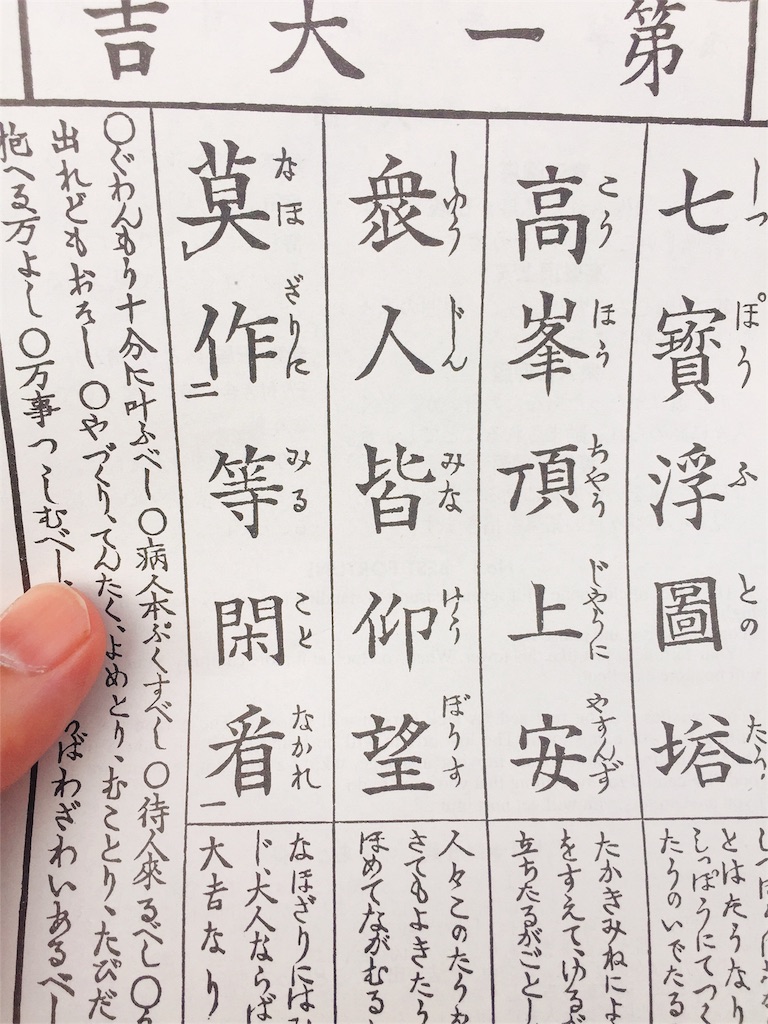 第一大吉
しつ ぽう ふ との たう
七寶浮圖塔
こう ほう ちやう じやうに やすんず
高峯頂上安
しゆう じん みな けう ぼうす
衆人皆仰望
なほ ざりに みる こと なかれ
莫作二等閑看一
とはたうなり
しつぽうにてつく
たうのいでたる
たかきみねによ
をすえて、ゆるぶ
立ちたるがごとし
人々このたう
さてもよきたう
ほめてながむる
なほざりにはみ
じ、大人ならば
大吉なり
○ぐわんもう十分に叶ふべし○病人本ぷくすべし○待人來るべし○
出れどもおそし○やづくり、てんたく、よめとり、むことり、たびだ
抱へる万よし○万事つゝしむべし、 わざわいあるべし